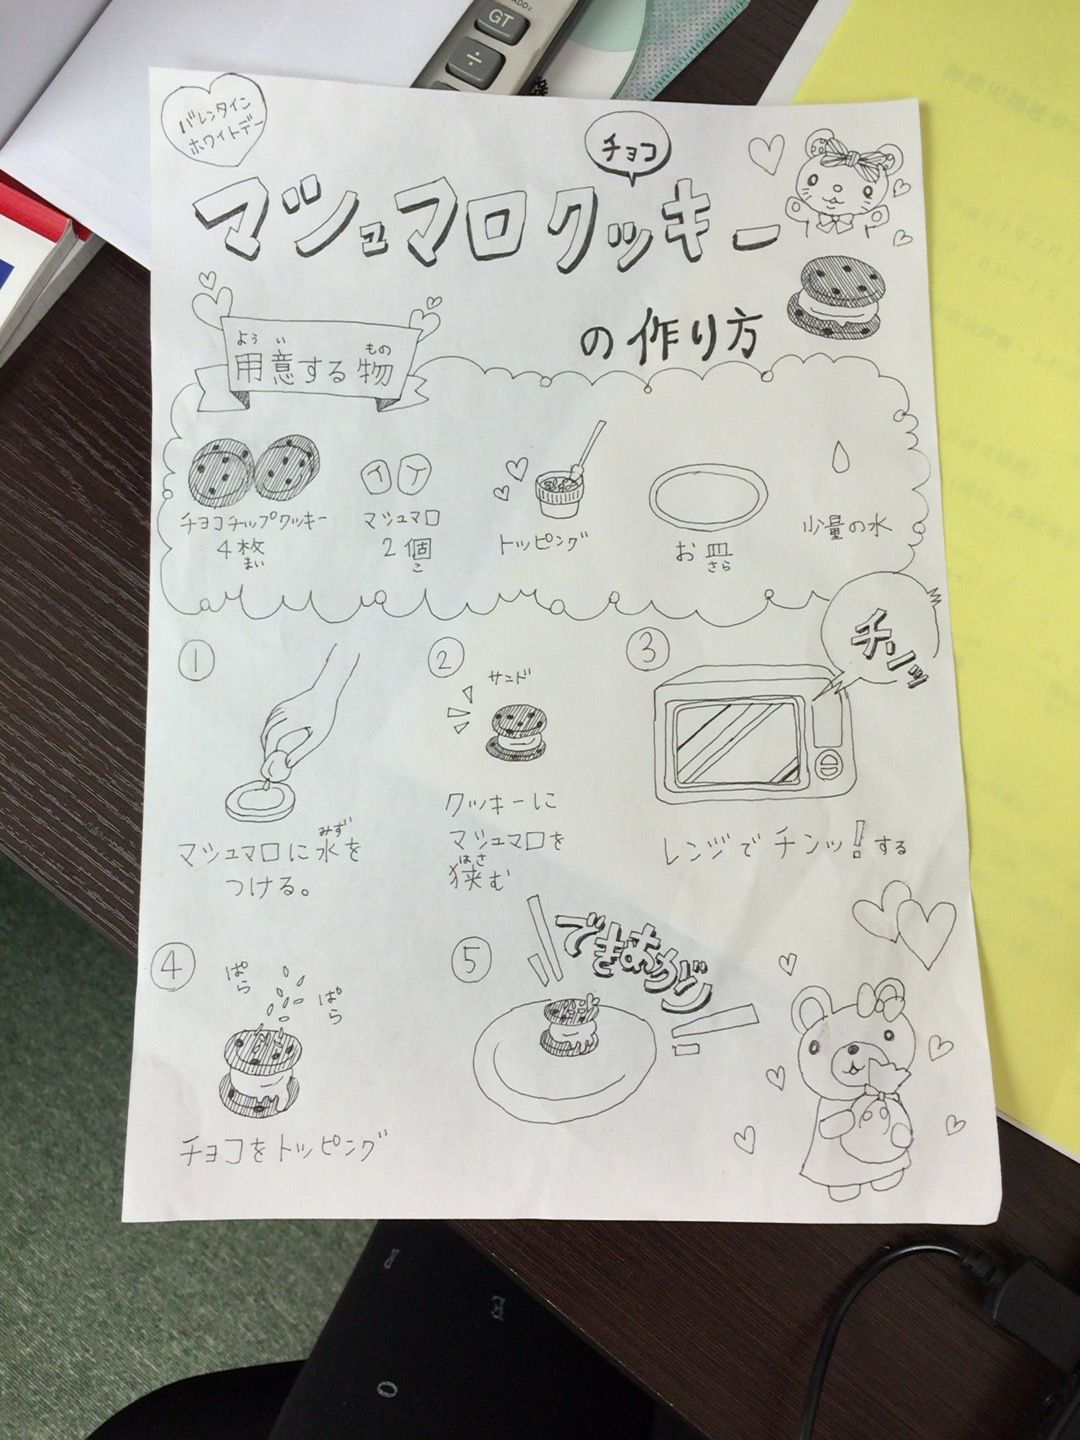 GT
÷
バレンタイン
ホワイトデー
チョコ
マシュマロクッキー
の作り方
ようい もの
用意する物
チョコチップクッキー
4枚
まい
マシュマロ
2個
こ
トッピング
お皿
さら
少量の水
①
みず
マシュマロに水を
つける。
②
サンド
クッキーに
マシュマロを
はさ
狭む
③
チンッ
レンジでチンッ!する
④
ぱら
ぱら
チョコをトッピング
⑤
できあがり
R
E
O